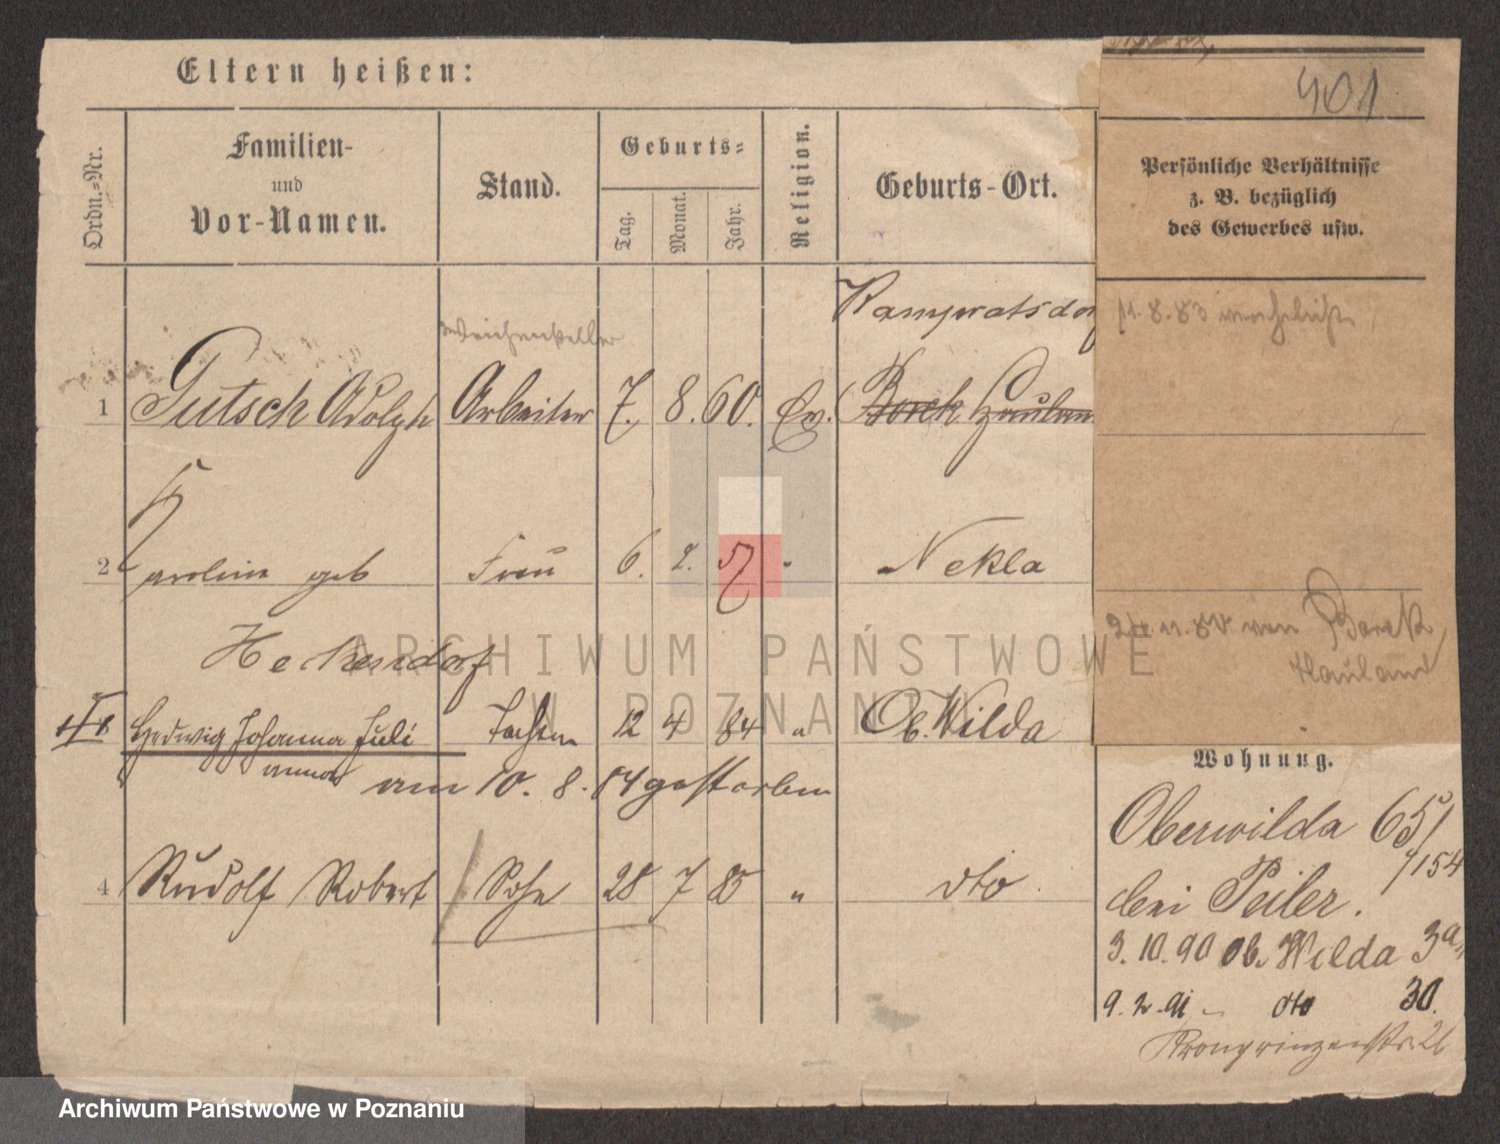 Eltern heißen:
401
Ordn.-Nr.
Familien-
und
Vor-Namen.
Stand.
Geburts-
Tag.
Monat.
Jahr.
Religion.
Geburts-Ort.
Persönliche Verhältnisse
z. B. bezüglich
des Gewerbes usw.
Kampratsdorf
11.8.83
Weichensteller
1 Gutsch Adolph Arbeiter 7. 8. 60. Ev. Borek Hauland
2 Karolin geb Frau 6. 2. 57 " Nekla
Heckendorf
24.11.84 von Borek
Hauland
Hedwig Johanna Juli Tochter 12 4 84 " Ob. Wilda
anna
am 10. 8. 84 gestorben
4 Rudolf Robert Sohn 28 7 85 " dto
Wohnung.
Oberwilda 65/
/154
bei Peiler.
3.10.90 Ob. Wilda 3a
9.2.91 - dto 30.
Kronprinzenstr. 26
ARCHIWUM PAŃSTWOWE
W POZNANIU
Archiwum Państwowe w Poznaniu